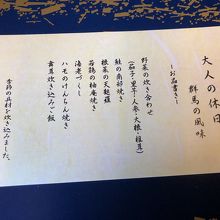 大人の休日
群馬の風味
～お品書き～
野菜の炊き合わせ
(茄子・里芋・人参・大根・椎茸)
鮭の南部焼き
根菜の天麩羅
若鶏の柚庵焼き
海老づくし
ハモのけんちん焼き
舞茸炊き込みご飯
季節の具材を炊き込みました。